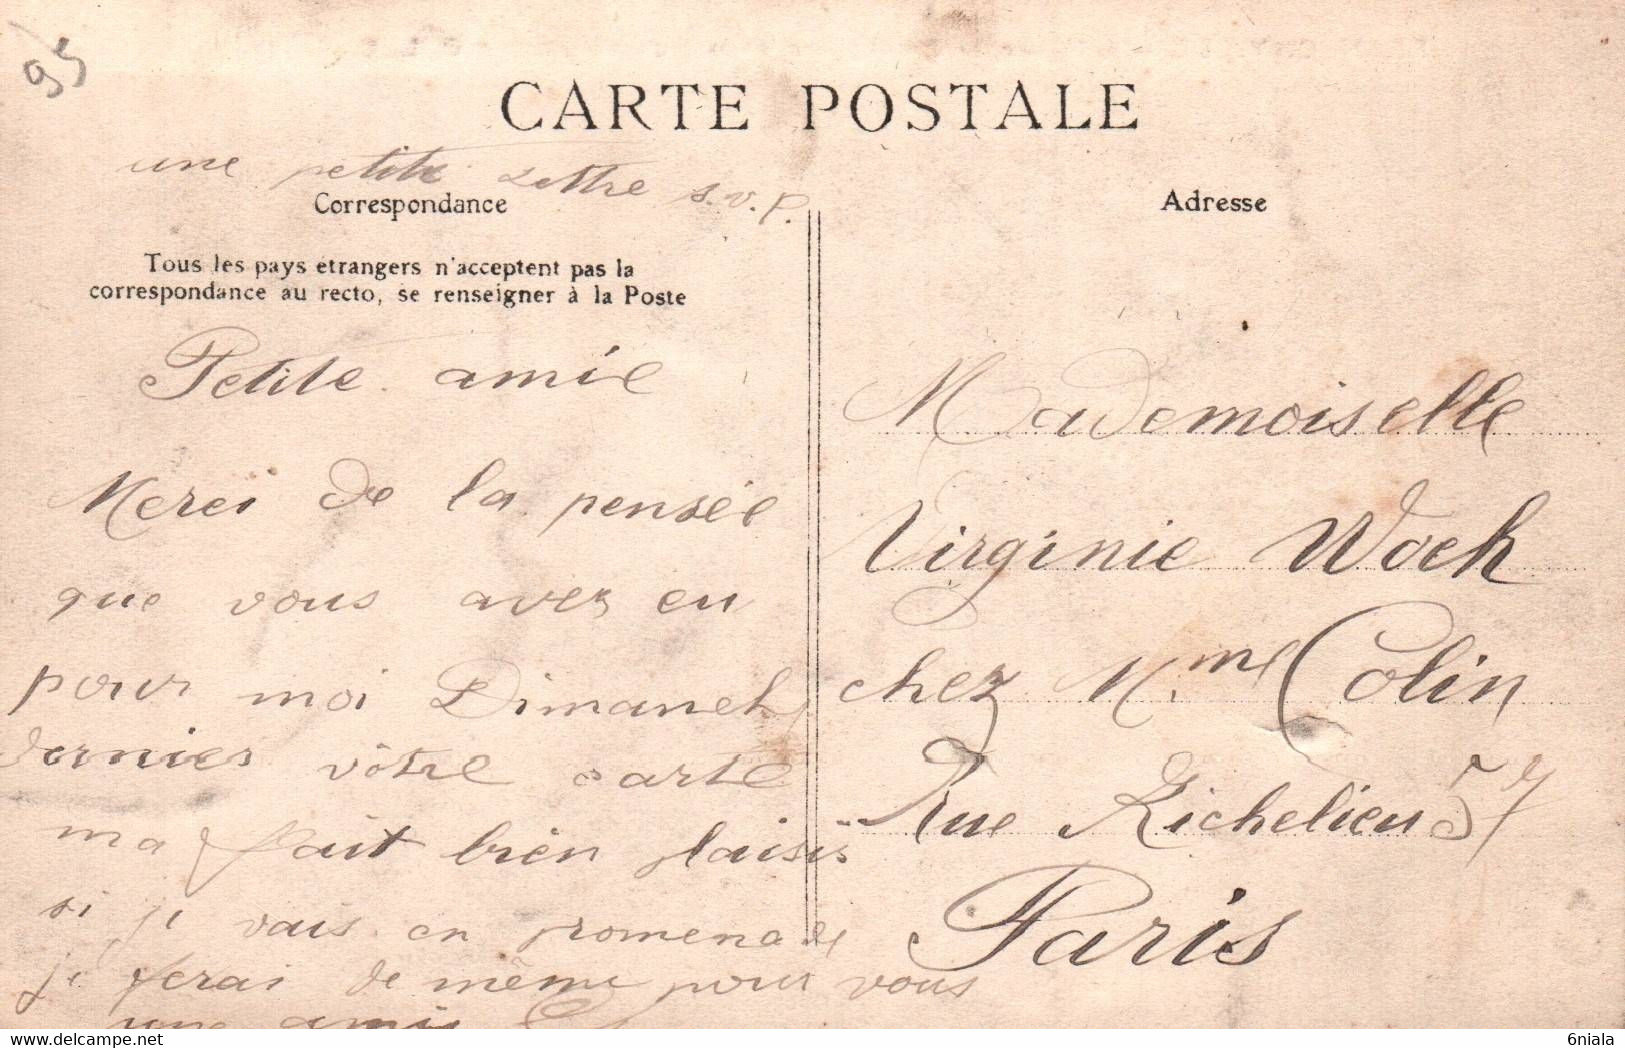 95
CARTE POSTALE
une petite Lettre s.v.P.
Correspondance
Tous les pays étrangers n'acceptent pas la
correspondance au recto, se renseigner à la Poste
Petite amie
Merci de la pensée
que vous avez eu
pour moi Dimanch
dernier vôtre carte
ma fait bien plaisis
si je vais en promenade
je ferai de même pour vous
une amie
Adresse
Mademoiselle
Virginie Woch
chez Mme Colin
Rue Richelieu 57
Paris
6niala